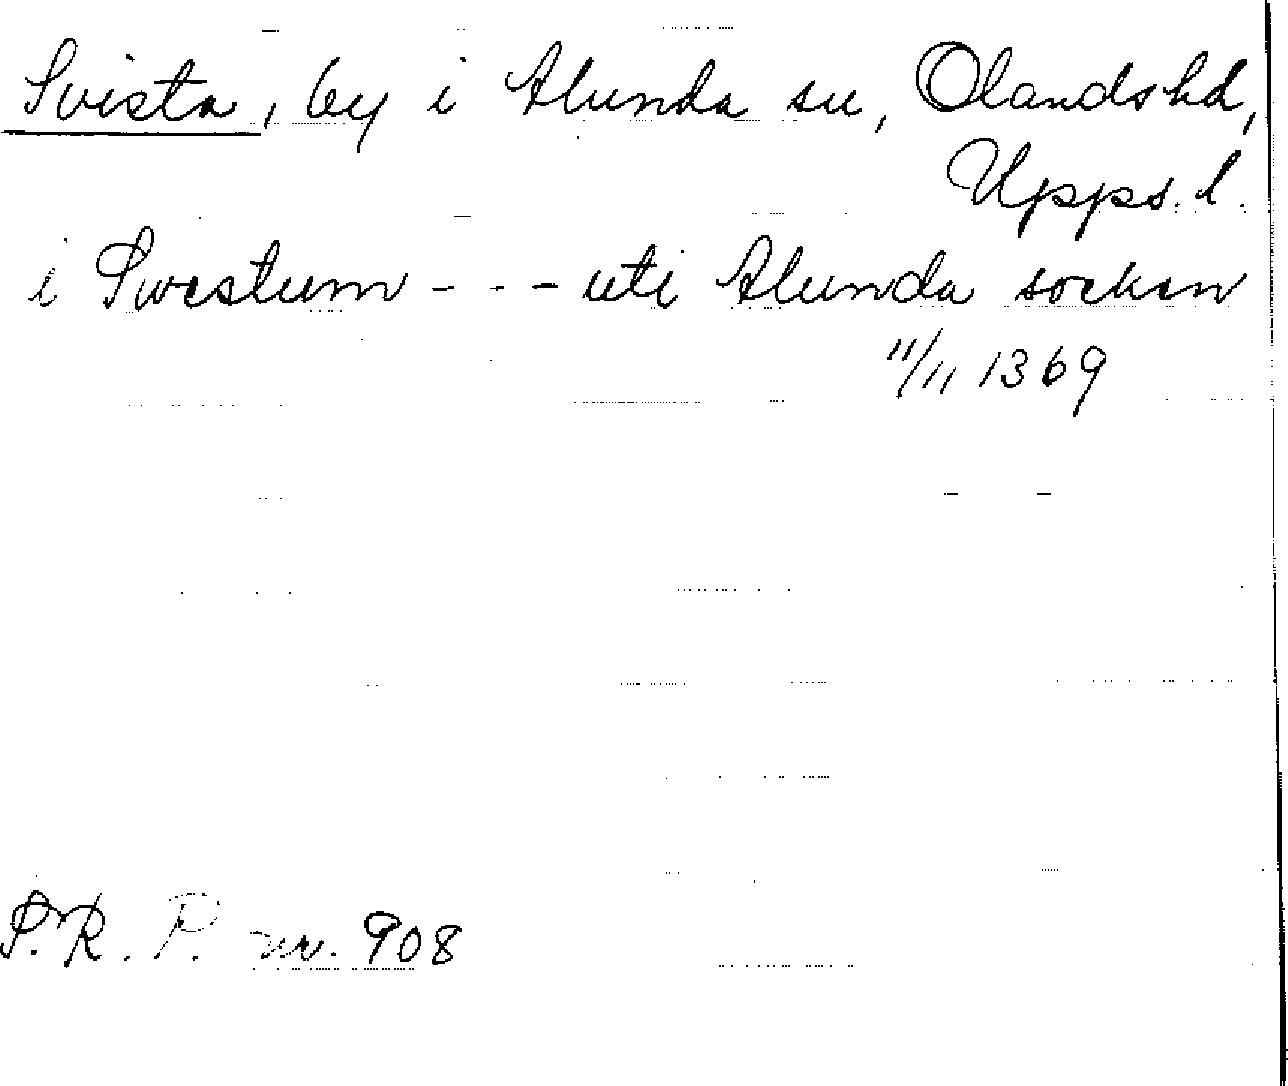 Svista, by i Alunda sn, Olands hd,
Upps. l.
i Swestum - - - uti Alunda soken
11/11 1369
S.R.P. nr. 908